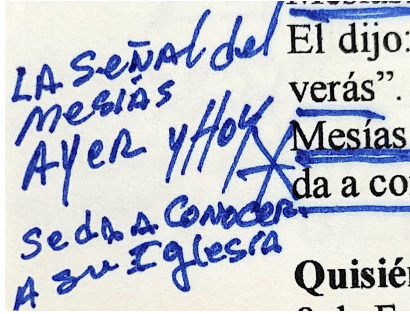 LA SeÑAl del
MesiÁs
AYeR y HOY
Se da A CONOCeR.
A su IglesiA
El dijo:
verás”.
Mesías
da a co
Quisiér